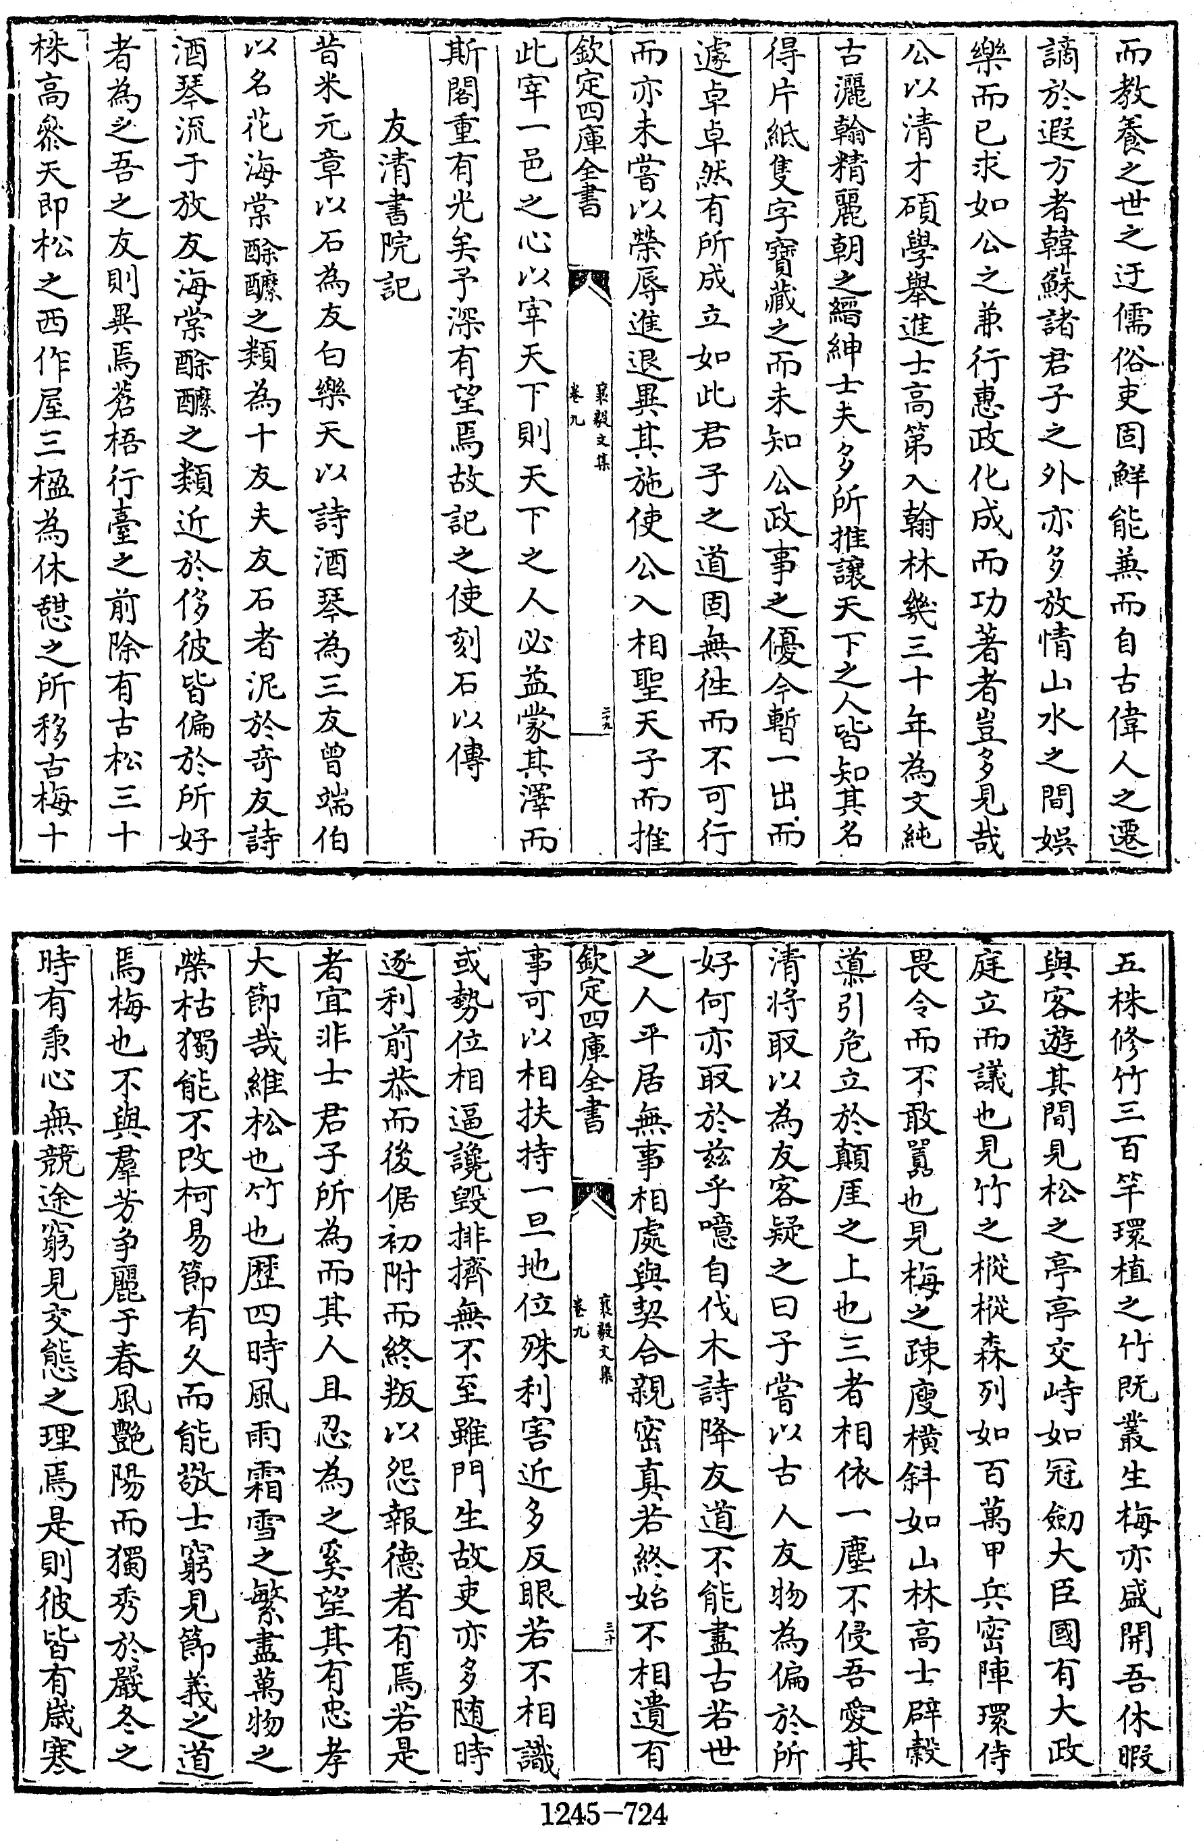 而教養之世之迂儒俗吏固鮮能兼而自古偉人之遷
謫於遐方者韓蘇諸君子之外亦多放情山水之間娛
樂而已求如公之兼行惠政化成而功著者豈多見哉
公以清才碩學舉進士高第入翰林幾三十年為文純
古灑翰精麗朝之縉紳士夫多所推讓天下之人皆知其名
得片紙隻字寶藏之而未知公政事之優今暫一出而
遽卓卓然有所成立如此君子之道固無徃而不可行
而亦未嘗以榮辱進退異其施使公入相聖天子而推
欽定四庫全書
襄毅文集
卷九
二十九
此宰一邑之心以宰天下則天下之人必益蒙其澤而
斯閣重有光矣予深有望焉故記之使刻石以傳
友清書院記
昔米元章以石為友白樂天以詩酒琴為三友曾端伯
以名花海棠酴醾之類為十友夫友石者泥於奇友詩
酒琴流于放友海棠酴醾之類近於侈彼皆偏於所好
者為之吾之友則異焉蒼梧行臺之前除有古松三十
株高叅天即松之西作屋三楹為休憇之所移古梅十
五株修竹三百竿環植之竹既叢生梅亦盛開吾休暇
與客遊其間見松之亭亭交峙如冠劒大臣國有大政
庭立而議也見竹之樅樅森列如百萬甲兵密陣環侍
畏令而不敢囂也見梅之疎廋橫斜如山林高士辟穀
導引危立於顛厓之上也三者相依一塵不侵吾愛其
清將取以為友客疑之曰子嘗以古人友物為偏於所
好何亦取於兹乎噫自伐木詩降友道不能盡古若世
之人平居無事相處與契合親密真若終始不相遺有
欽定四庫全書
襄毅文集
卷九
三十
事可以相扶持一旦地位殊利害近多反眼若不相識
或勢位相逼讒毀排擠無不至雖門生故吏亦多随時
逐利前恭而後倨初附而終叛以怨報德者有焉若是
者宜非士君子所為而其人且忍為之奚望其有忠孝
大節哉維松也竹也歷四時風雨霜雪之繁盡萬物之
榮枯獨能不改柯易節有久而能敬士窮見節義之道
焉梅也不與羣芳争麗于春風艷陽而獨秀於嚴冬之
時有秉心無競途窮見交態之理焉是則彼皆有歲寒
1245-724